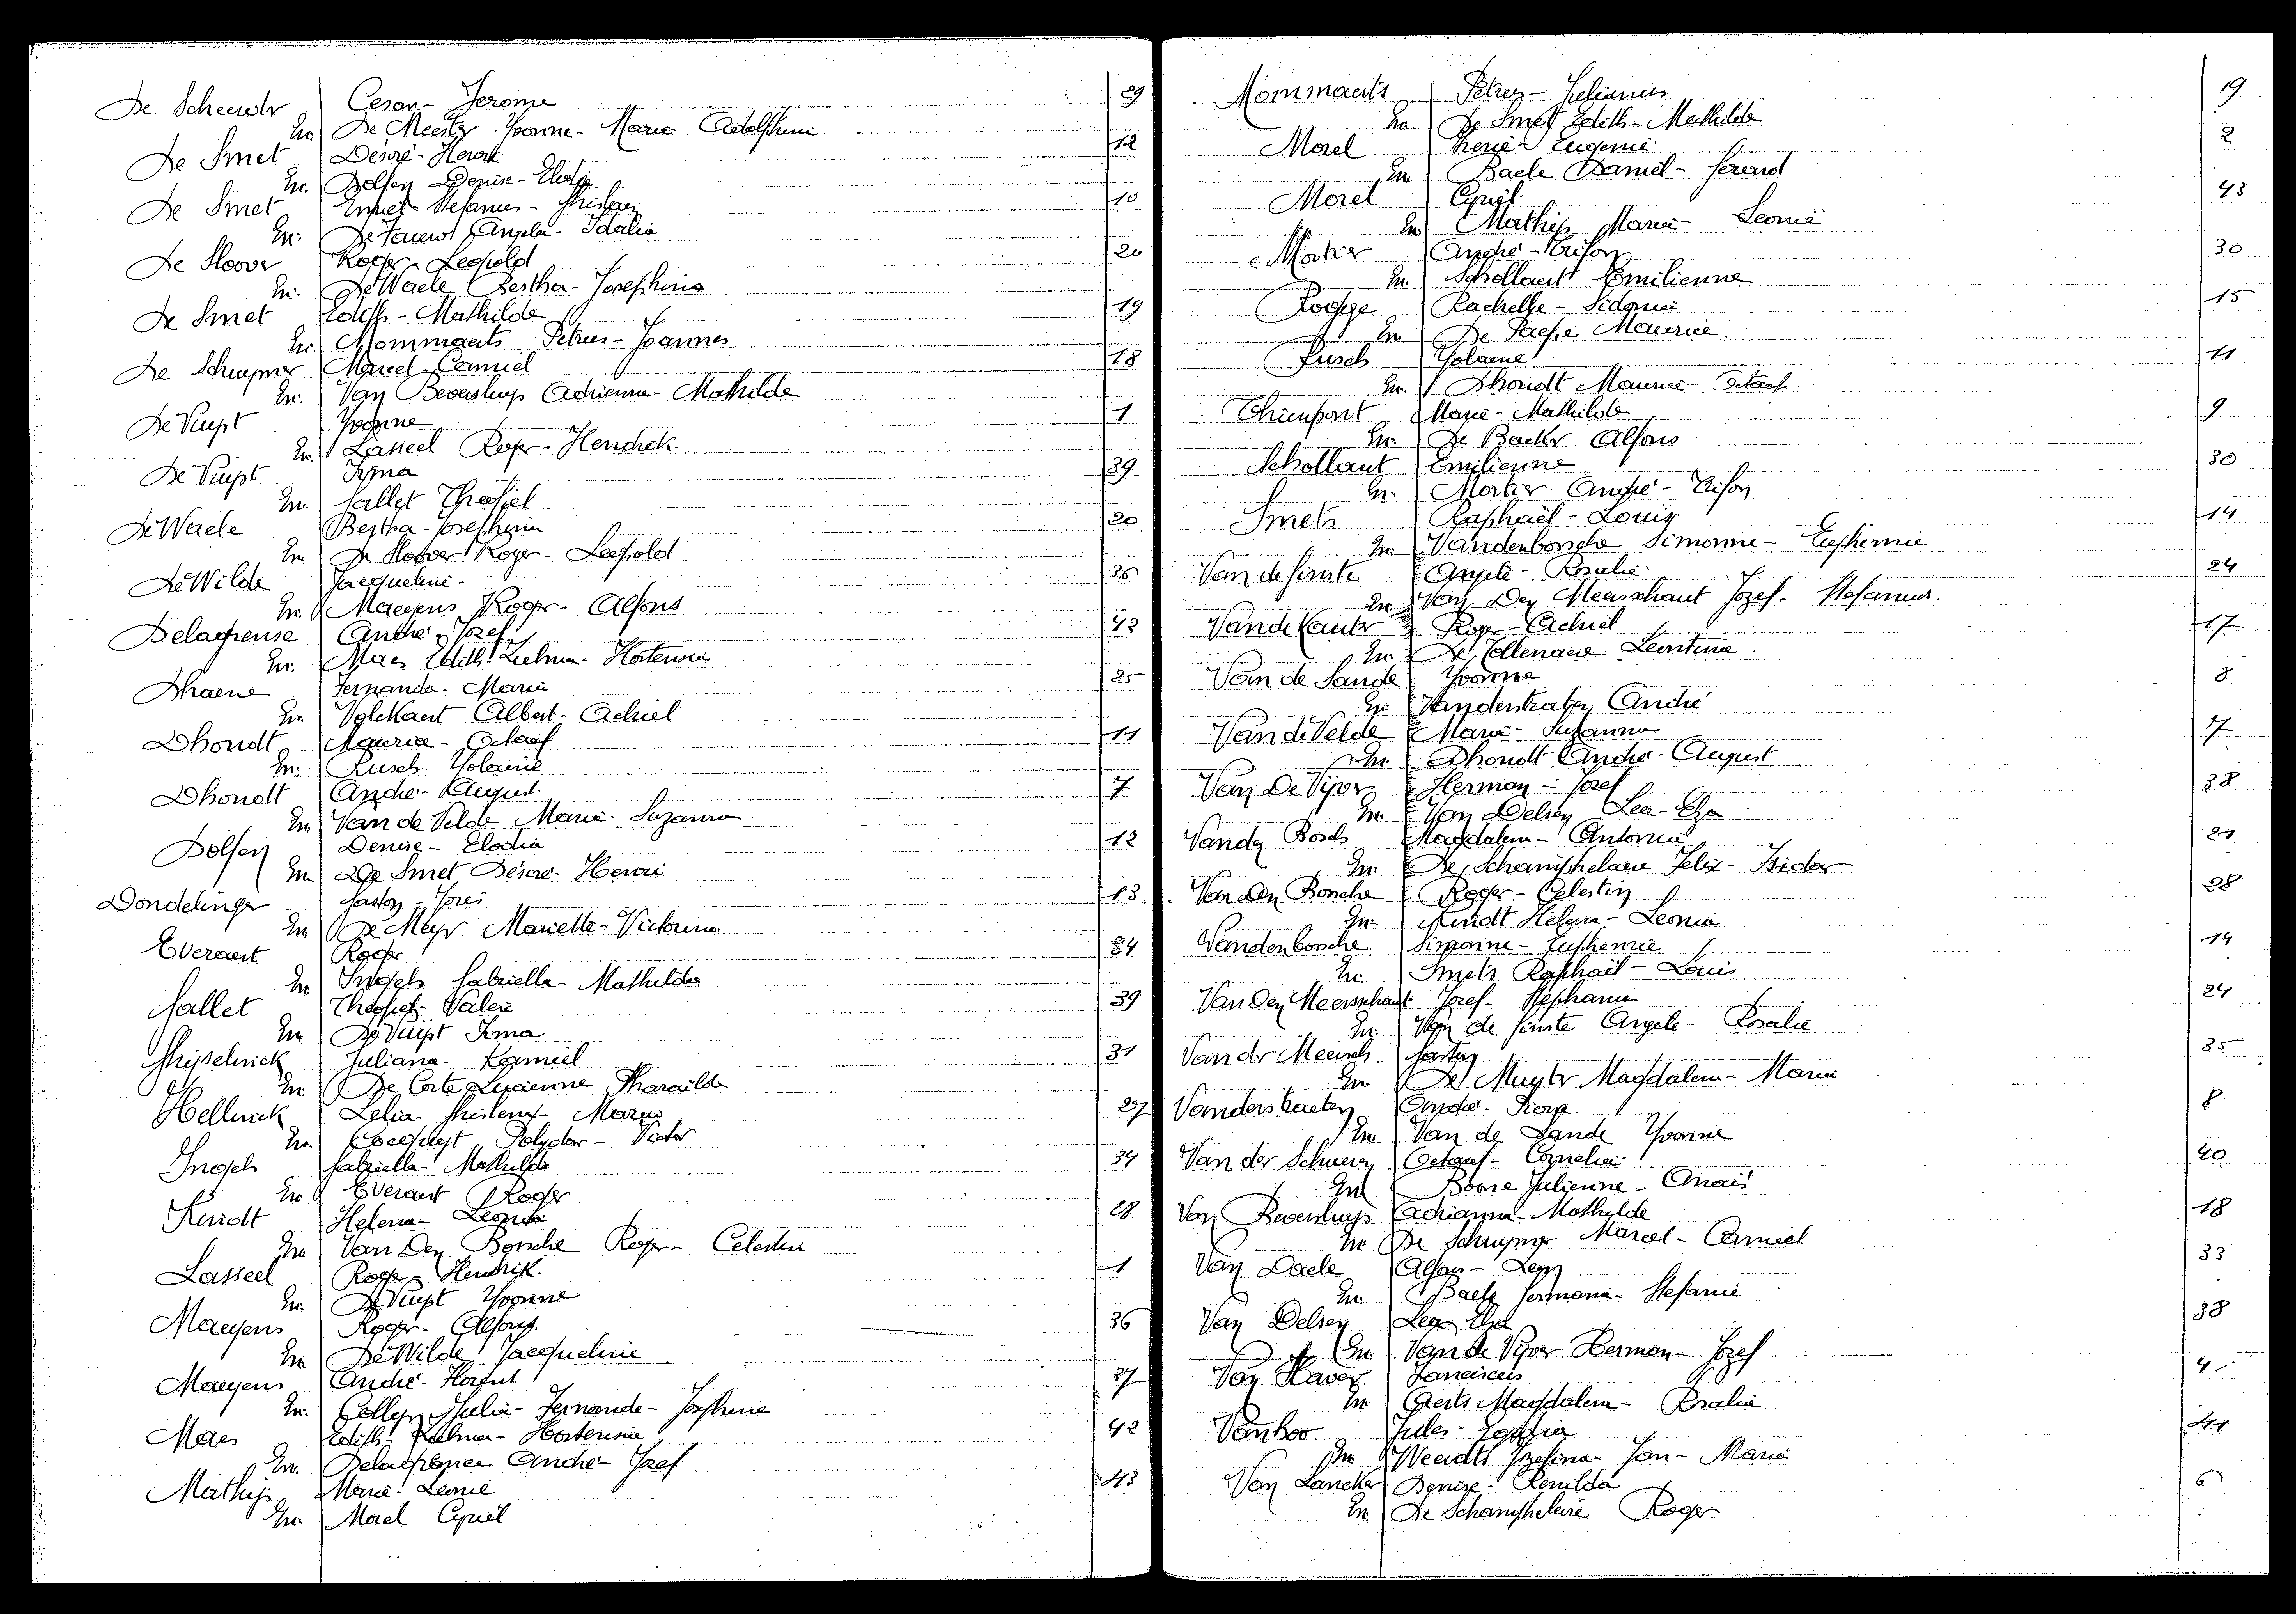 De Scheerder Cesar - Jerome 29
En. De Meester Yvonne - Marie Adolphine
De Smet Désiré - Henri 12
En. Dolfen Denise - Elodia
De Smet Stefanus - 10
En. Angela - Idalia
De Sloover Roger - Leopold 20
En. De Waele Bertha - Josephina
De Smet Edith - Mathilde 19
En. Mommaerts Petrus - Joannes
De Schuymer Marcel - Camiel 18
En. Van Beversluys Adrienna - Mathilde
De Vuyst Yvonne 1
En. Lasseel Roger - Hendrik
De Vuyst Irma 39
En. Gallet Theofiel
De Waele Bertha - Josephina 20
En De Sloover Roger - Leopold
De Wilde Jacqueline - 36
En. Maeyens Roger - Alfons
Delagrense André - Jozef 42
En. Maes Edith - Zulma - Hortensia
Dhaene Fernanda - Maria 25
En. Volckaert Albert - Achiel
Dhondt Maurice - Octaaf 11
En. Rusch Yolaine
Dhondt André - August 7
En Van de Velde Maria - Suzanna
Dolfen Denise - Elodia 12
En De Smet Désiré - Henri
Dondelinger Gaston - Joris 13
En De Meyer Mariette - Victorina
Everaert Roger 34
En Ingels Gabriella - Mathilda
Gallet Theofiel - Valeri 39
En De Vuyst Irma
Ghijselinck Juliana - Kamiel 31
En. De Corte Lucienne Pharailde
Hellinck Zelia - Ghislena - Maria 27
En. Polydor - Victor
Ingels Gabriella - Mathilda 34
En Everaert Roger
Kindt Helena - Leonia 28
En Van Den Bossche Roger - Celestin
Lasseel Roger - Hendrik 1
En. De Vuyst Yvonne
Maeyens Roger - Alfons 36
En De Wilde Jacqueline
Maeyens André - Horest 37
En. Collen Julia - Fernande - Josephine
Maes Edith - Zulma - Hortensia 42
En. André - Jozef
Mathijs Maria - Leonie 43
En. Morel Cyriel
Mommaerts Petrus - 19
En De Smet Edith - Mathilde
Morel Irené - Eugenie 2
En Baele Daniel - Gerard
Morel Cyriel 43
En Mathijs Maria - Leonie
Mortier André - Trifon 30
En. Schollaert Emilienne
Rogge Rachelle - Sidonie 15
En De Paepe Maurice
Rusch Yolaine 11
En. Dhondt Maurice - Octaaf
Thienpont Maria - Mathilde 9
En. De Backer Alfons
Schollaert Emilienne 30
En. Mortier André - Trifon
Smets Raphaël - Louis 14
En. Vandenbossche Simonne - Euphemie
Van de Ginste Angele - Rosalie 24
En Van Den Meersschaut Jozef - Stefanus.
Van de Kauter Roger - Achiel 17
En. De Collenaere Leontina
Van de Sande Yvonne 8
En Vanderstraeten André
Van de Velde Maria - Suzanna 7
En Dhondt André - August
Van De Vijver Herman - Jozef 38
En Van Delsen Lea - Elza
Vanden Bosch Magdalena - Antonia 21
En. De Schamphelaere Felix - Isidor
Van Den Bossche Roger - Celestin 28
En. Kindt Helena - Leonia
Vandenbossche Simonne - Euphemie 14
En. Smets Raphaël - Louis
Van Den Meersschaut Jozef - Stephanus 24
En. Van de Ginste Angele - Rosalie
Van der Meersch Gaston 35
En. De Muyter Magdalena - Maria
Vanderstraeten André - Pierre 8
En Van de Sande Yvonne
Van der Schueren Octaaf - Cornelia 40
En Boone Julienne - Anaïs
Van Beversluys Adrianna - Mathilde 18
En De Schuymer Marcel - Camiel
Van Daele Alfons - Leon 33
En. Baele Germana - Stefanie
Van Delsen Lea - Elza 38
En. Van de Vijver Herman - Jozef
Van Haver Franciscus 4
En Geerts Magdalena - Rosalia
Vanhoo Jules - 41
En Weendts Jozefina - Jan - Maria
Van Lancker Denise - Renilda 6
En De Schamphelaire Roger